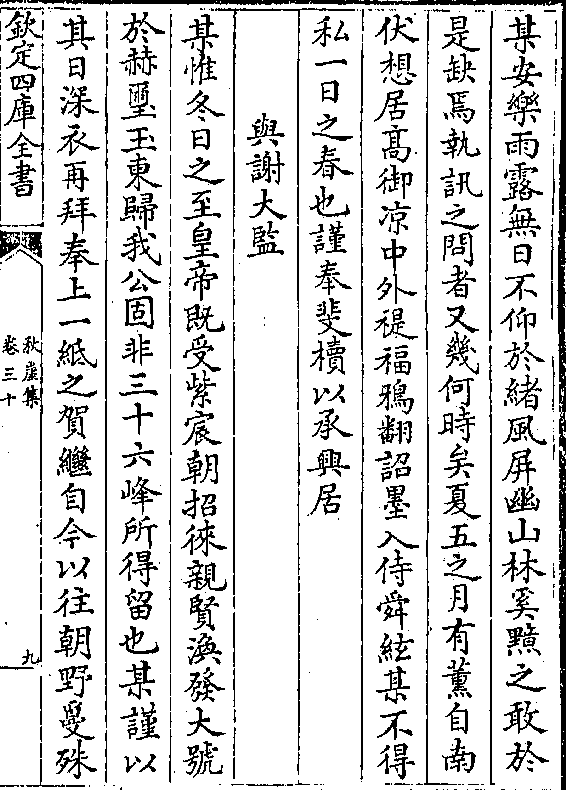 某安樂雨露無日不仰於緒風屏幽山林奚黰之敢於
是缺焉執訊之問者又幾何時矣夏五之月有薰自南
伏想居高御凉中外禔福鴉翻詔墨入侍舜絃某不得
私一日之春也謹奉斐櫝以承興居
與謝大監
某惟冬日之至皇帝既受紫宸朝招徠親賢渙發大號
於赫璽玉東歸我公固非三十六峰所得留也某謹以
其日深衣再拜奉上一紙之賀繼自今以往朝野㬅殊
欽定四庫全書
秋崖集
卷三十
九